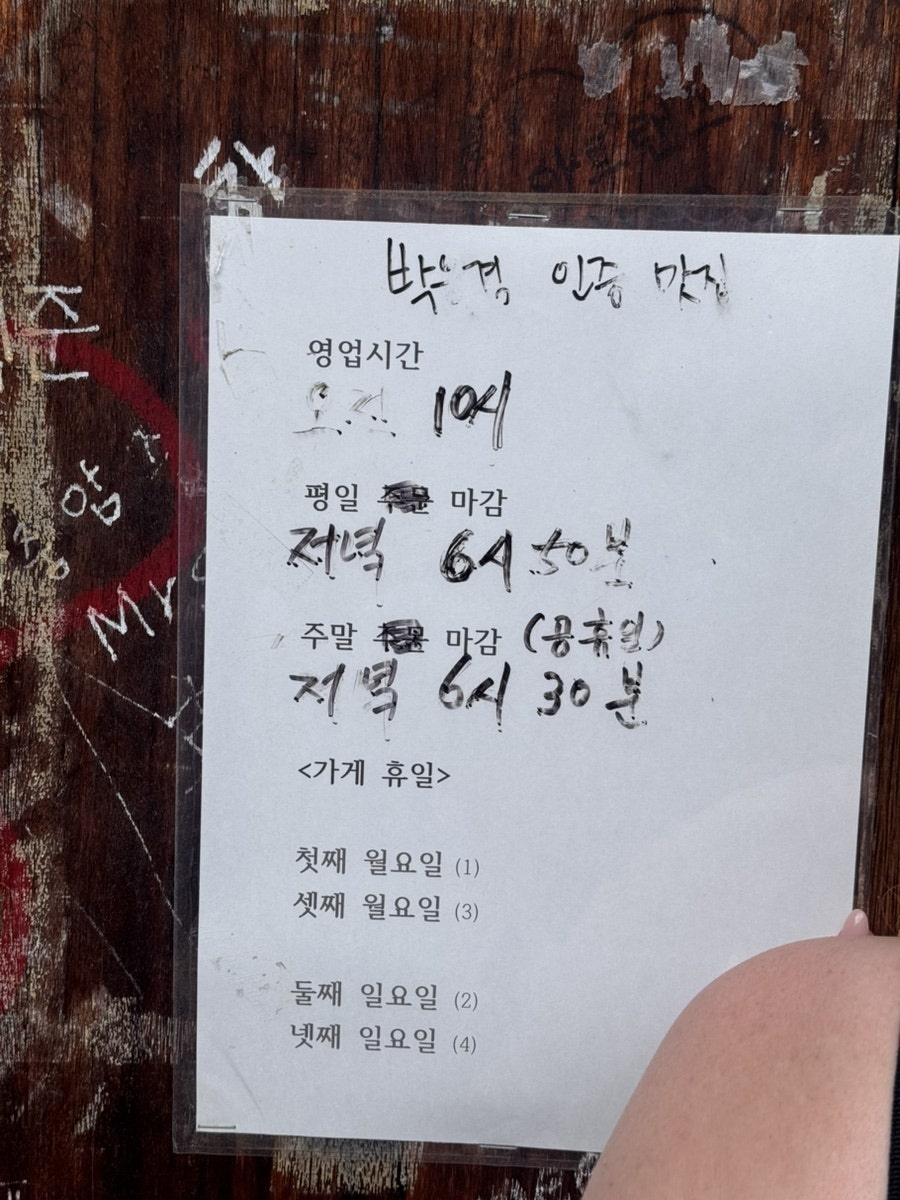 인증 맛집
영업시간
오전 10시
평일 마감
저녁 6시 50분
주말 마감 (공휴일)
저녁 6시 30분
<가게 휴일>
첫째 월요일 (1)
셋째 월요일 (3)
둘째 일요일 (2)
넷째 일요일 (4)
Mr